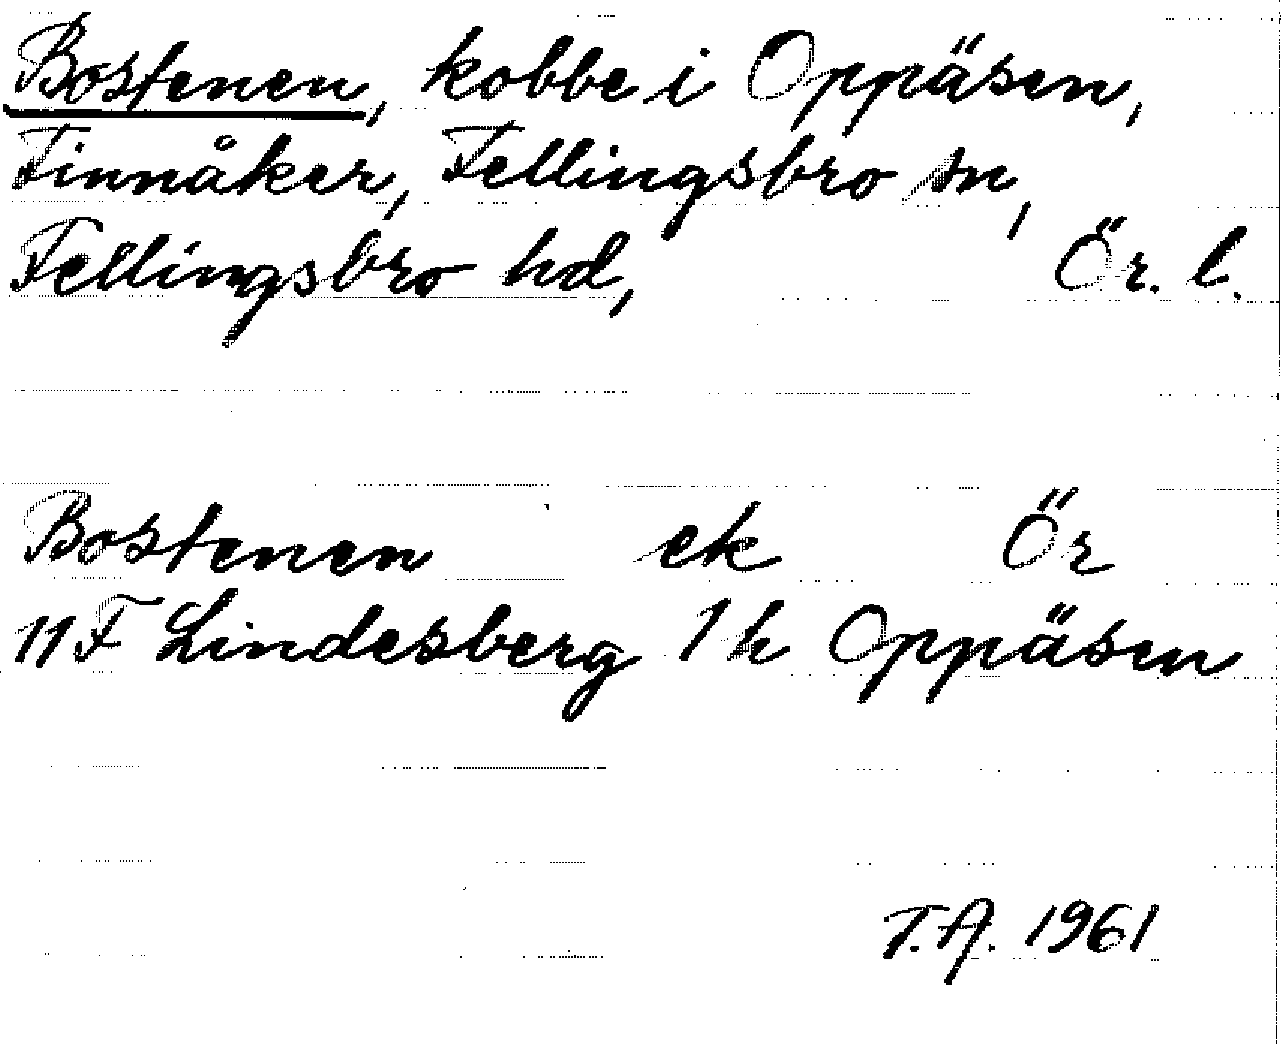 Bostenen, kobbe i Oppäsen,
Finnåker, Fellingsbro sn,
Fellingsbro hd, Ör. l.
Bostenen ek Ör
11F Lindesberg 1h Oppäsen
T.A. 1961